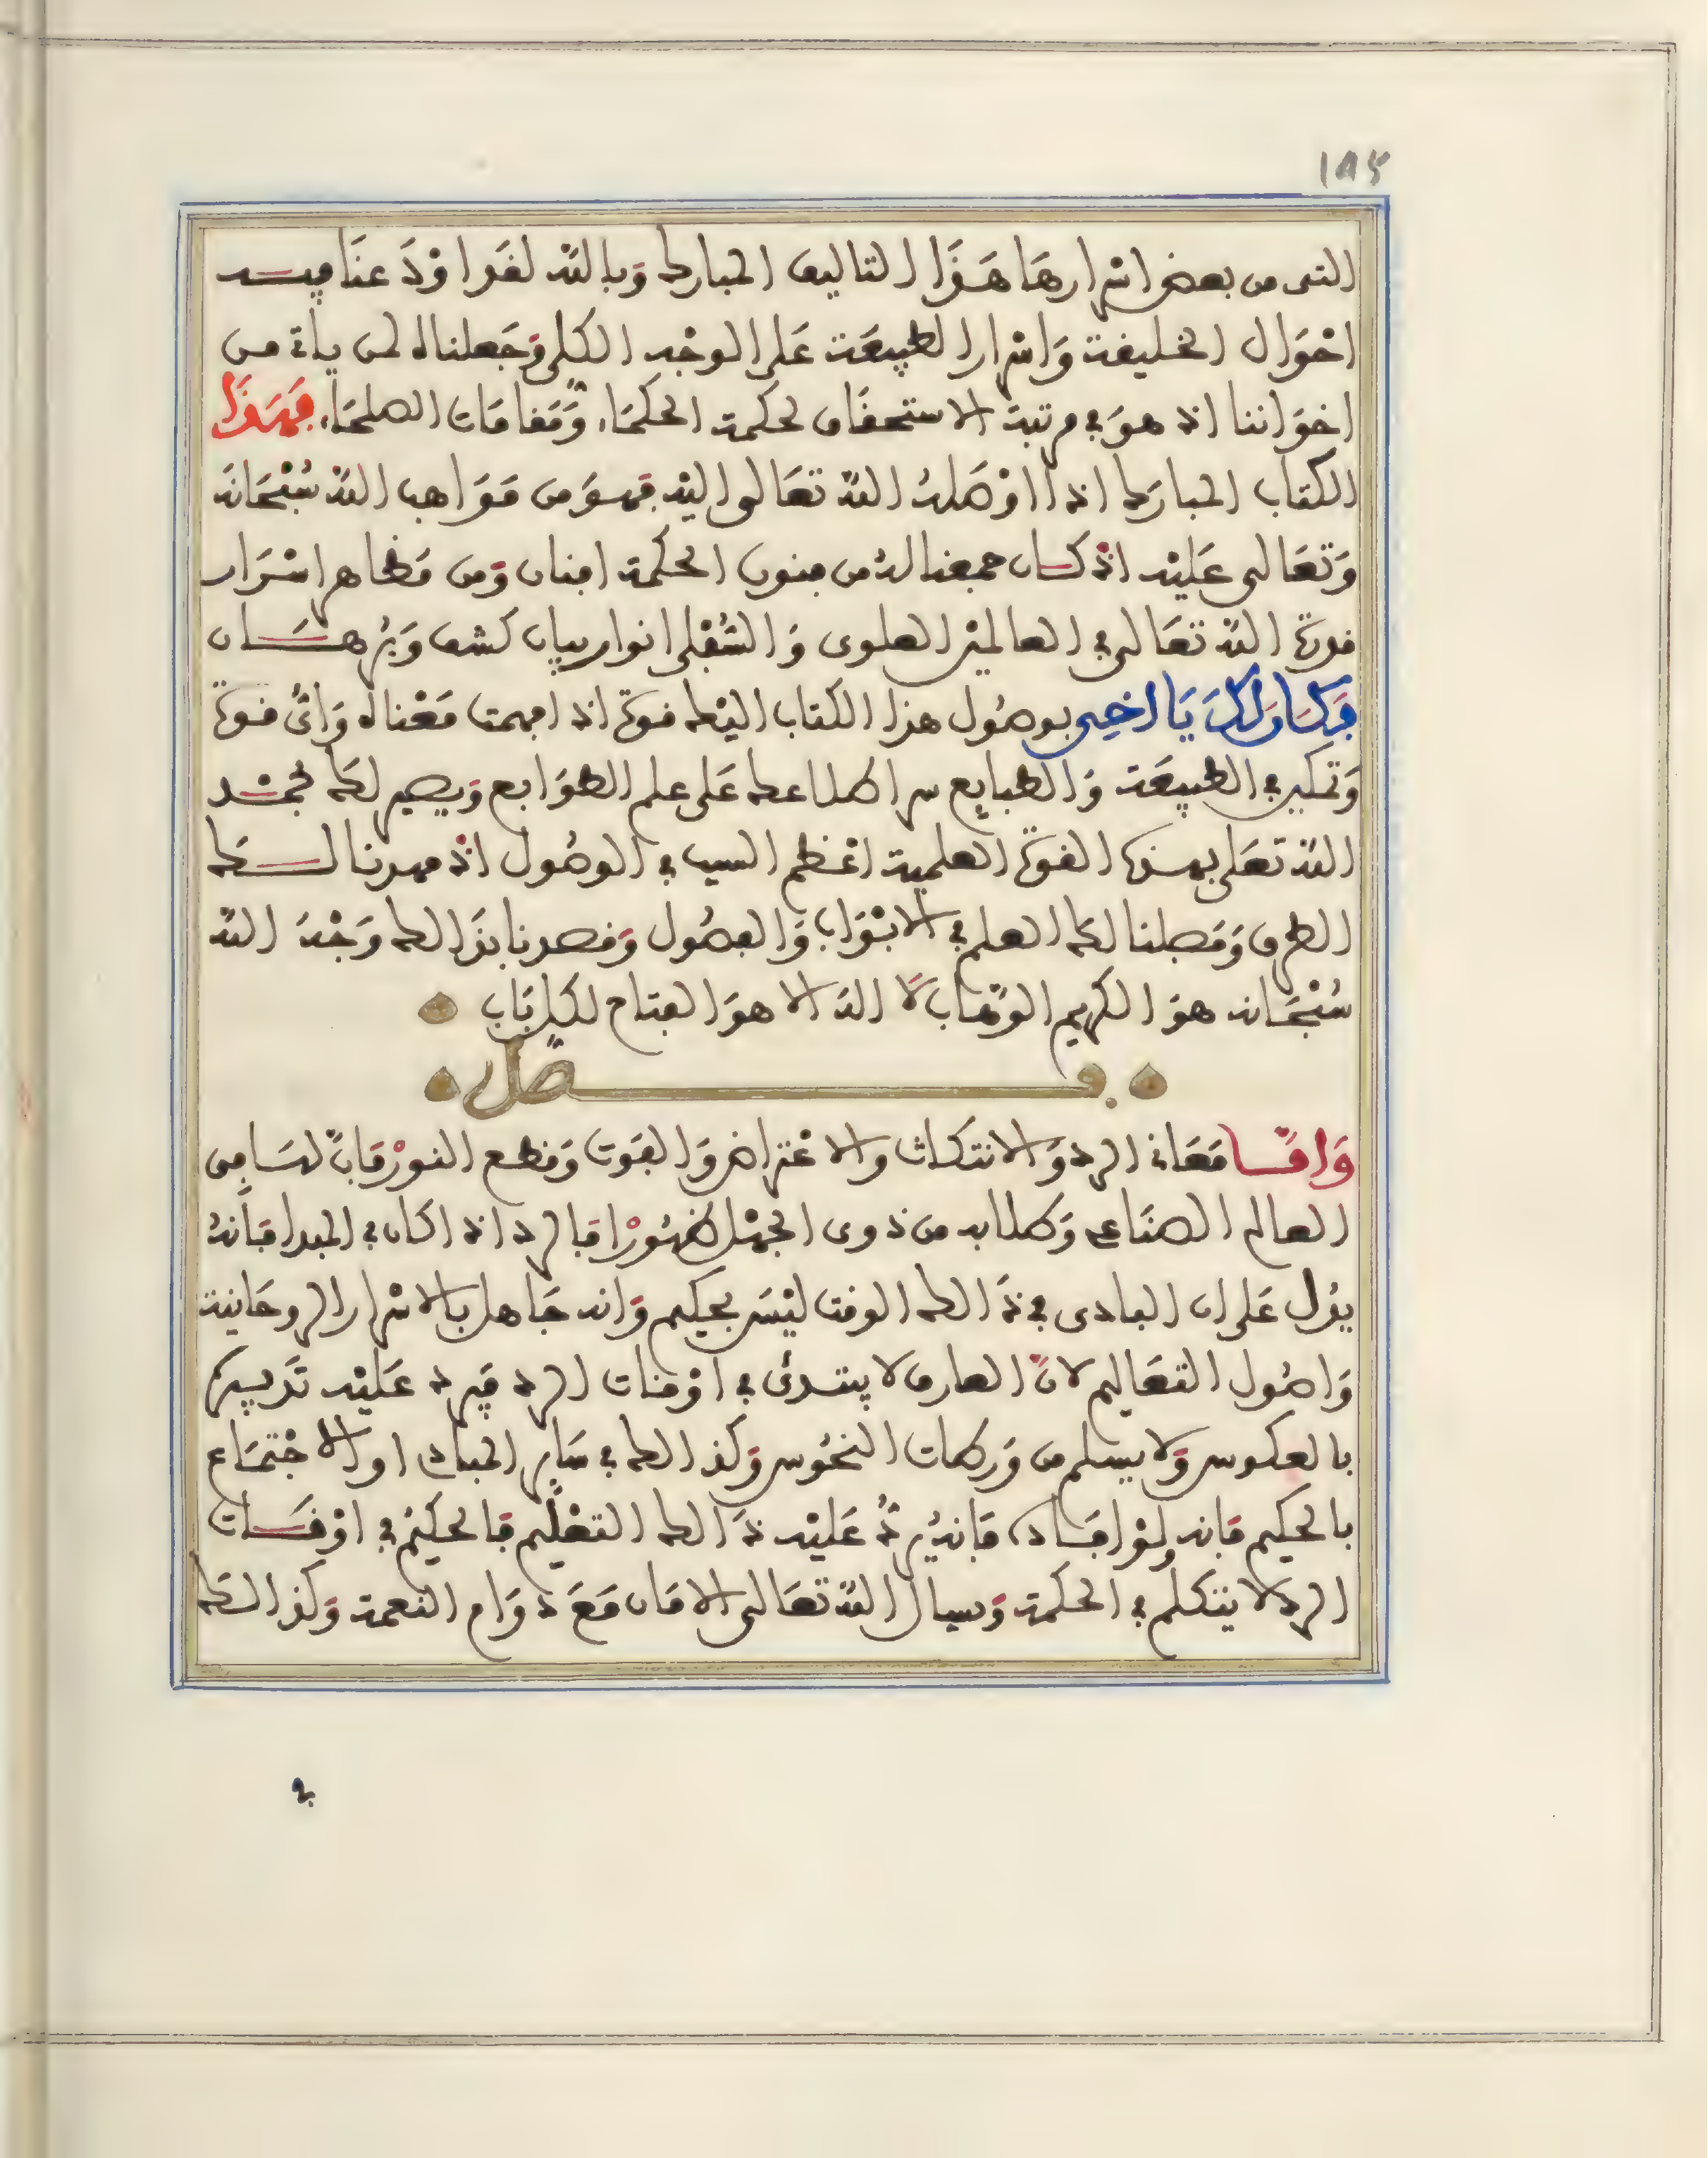 ١٨٤
التى من بعض اسرارها هَذَا التاليف المبارك وَبالله لقد اوْدَعنَا فيـــه
احْوَال الخليفة وَاسْرار الطبيعَة عَلى الوجْه الكلى وَجَعلناه لمن ياتي مــن
اخوَاننا اذ هوَ في مرتبة الاستحقَاق لحكمة الحكمَاء وَمَقامَات الصلحَاء فَهَذَا
الكتاب المبارَك اذا اوْصَلهُ الله تعَالى اليْه فهوَ من مَوَاهب الله سُبْحَانه
وَتعَالى عَليْه اذْ كــان جمعنا لهُ من فنون الحكمة افنان وَمن مَظاهر اسْرَار
قدرة الله تعَالى في العالميْن العلوى وَالسُفْلى انوار بيان كشف وَبُرهَــان
فَكَان لَكَ يَا اخِى بوصُول هذا الكتاب اليْك قوة اذا فهمت مَعْناه وَائُ قوة
وَتمكين في الطبيعَة وَالطبايع سر اطلاعك عَلى علم الطوَابع وَيصير لكَ بحمْــد
الله تعَلى بهذه القوة العلمية اعْظم السبب في الوصُول اذْ مهدنا لــك
الطرق وَفَصلنا لكَ العلم في الابْوَاب وَالفصُول وَقصدنا بذَالك وَجْهَ الله
سُبْحَانه هوَ الكريم الوَهَّاب لَا اله الا هوَ الفتاح لكل بَاب
فــصل
وَامَّــا مَعَاني الرد وَالانتكاث والاعْتراض وَالفوت وَقطع النورْ فَانَّ لهَا في
العالم الصنَاعى وَكلابه من ذوى الجهْل ظهُورْا فَالرد اذا كان في المبدا فَانهُ
يدُل عَلى ان البادى في ذَالك الوقت ليْسَ بحكيم وَانه جَاهل بالاسْرار الروحَانية
وَاصُول التعَاليم لانَّ العارف لا يبتدئ في اوْقات الرد فيَرد عَليْه تَدبيره
بالعكوس وَلا يسلم من وَرطات النحُوس وَكذالك في سَاير المبادى او الاجْتمَاع
بالحكيم فَانه ولوْ افَــاده فَانهُ يردُّ عَليْه ذَالك التعْليم فَالحكيْمُ في اوْقــات
الرد لا يتكلم في الحكمة وَيسال الله تعَالى الامَان مَعَ دوَام النعمة وَكذالــك
في